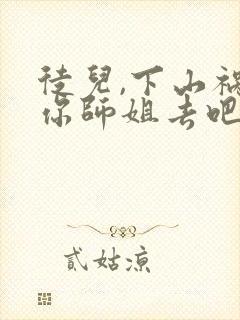 徒兒,下山禍
你師姐去吧
貳姑涼